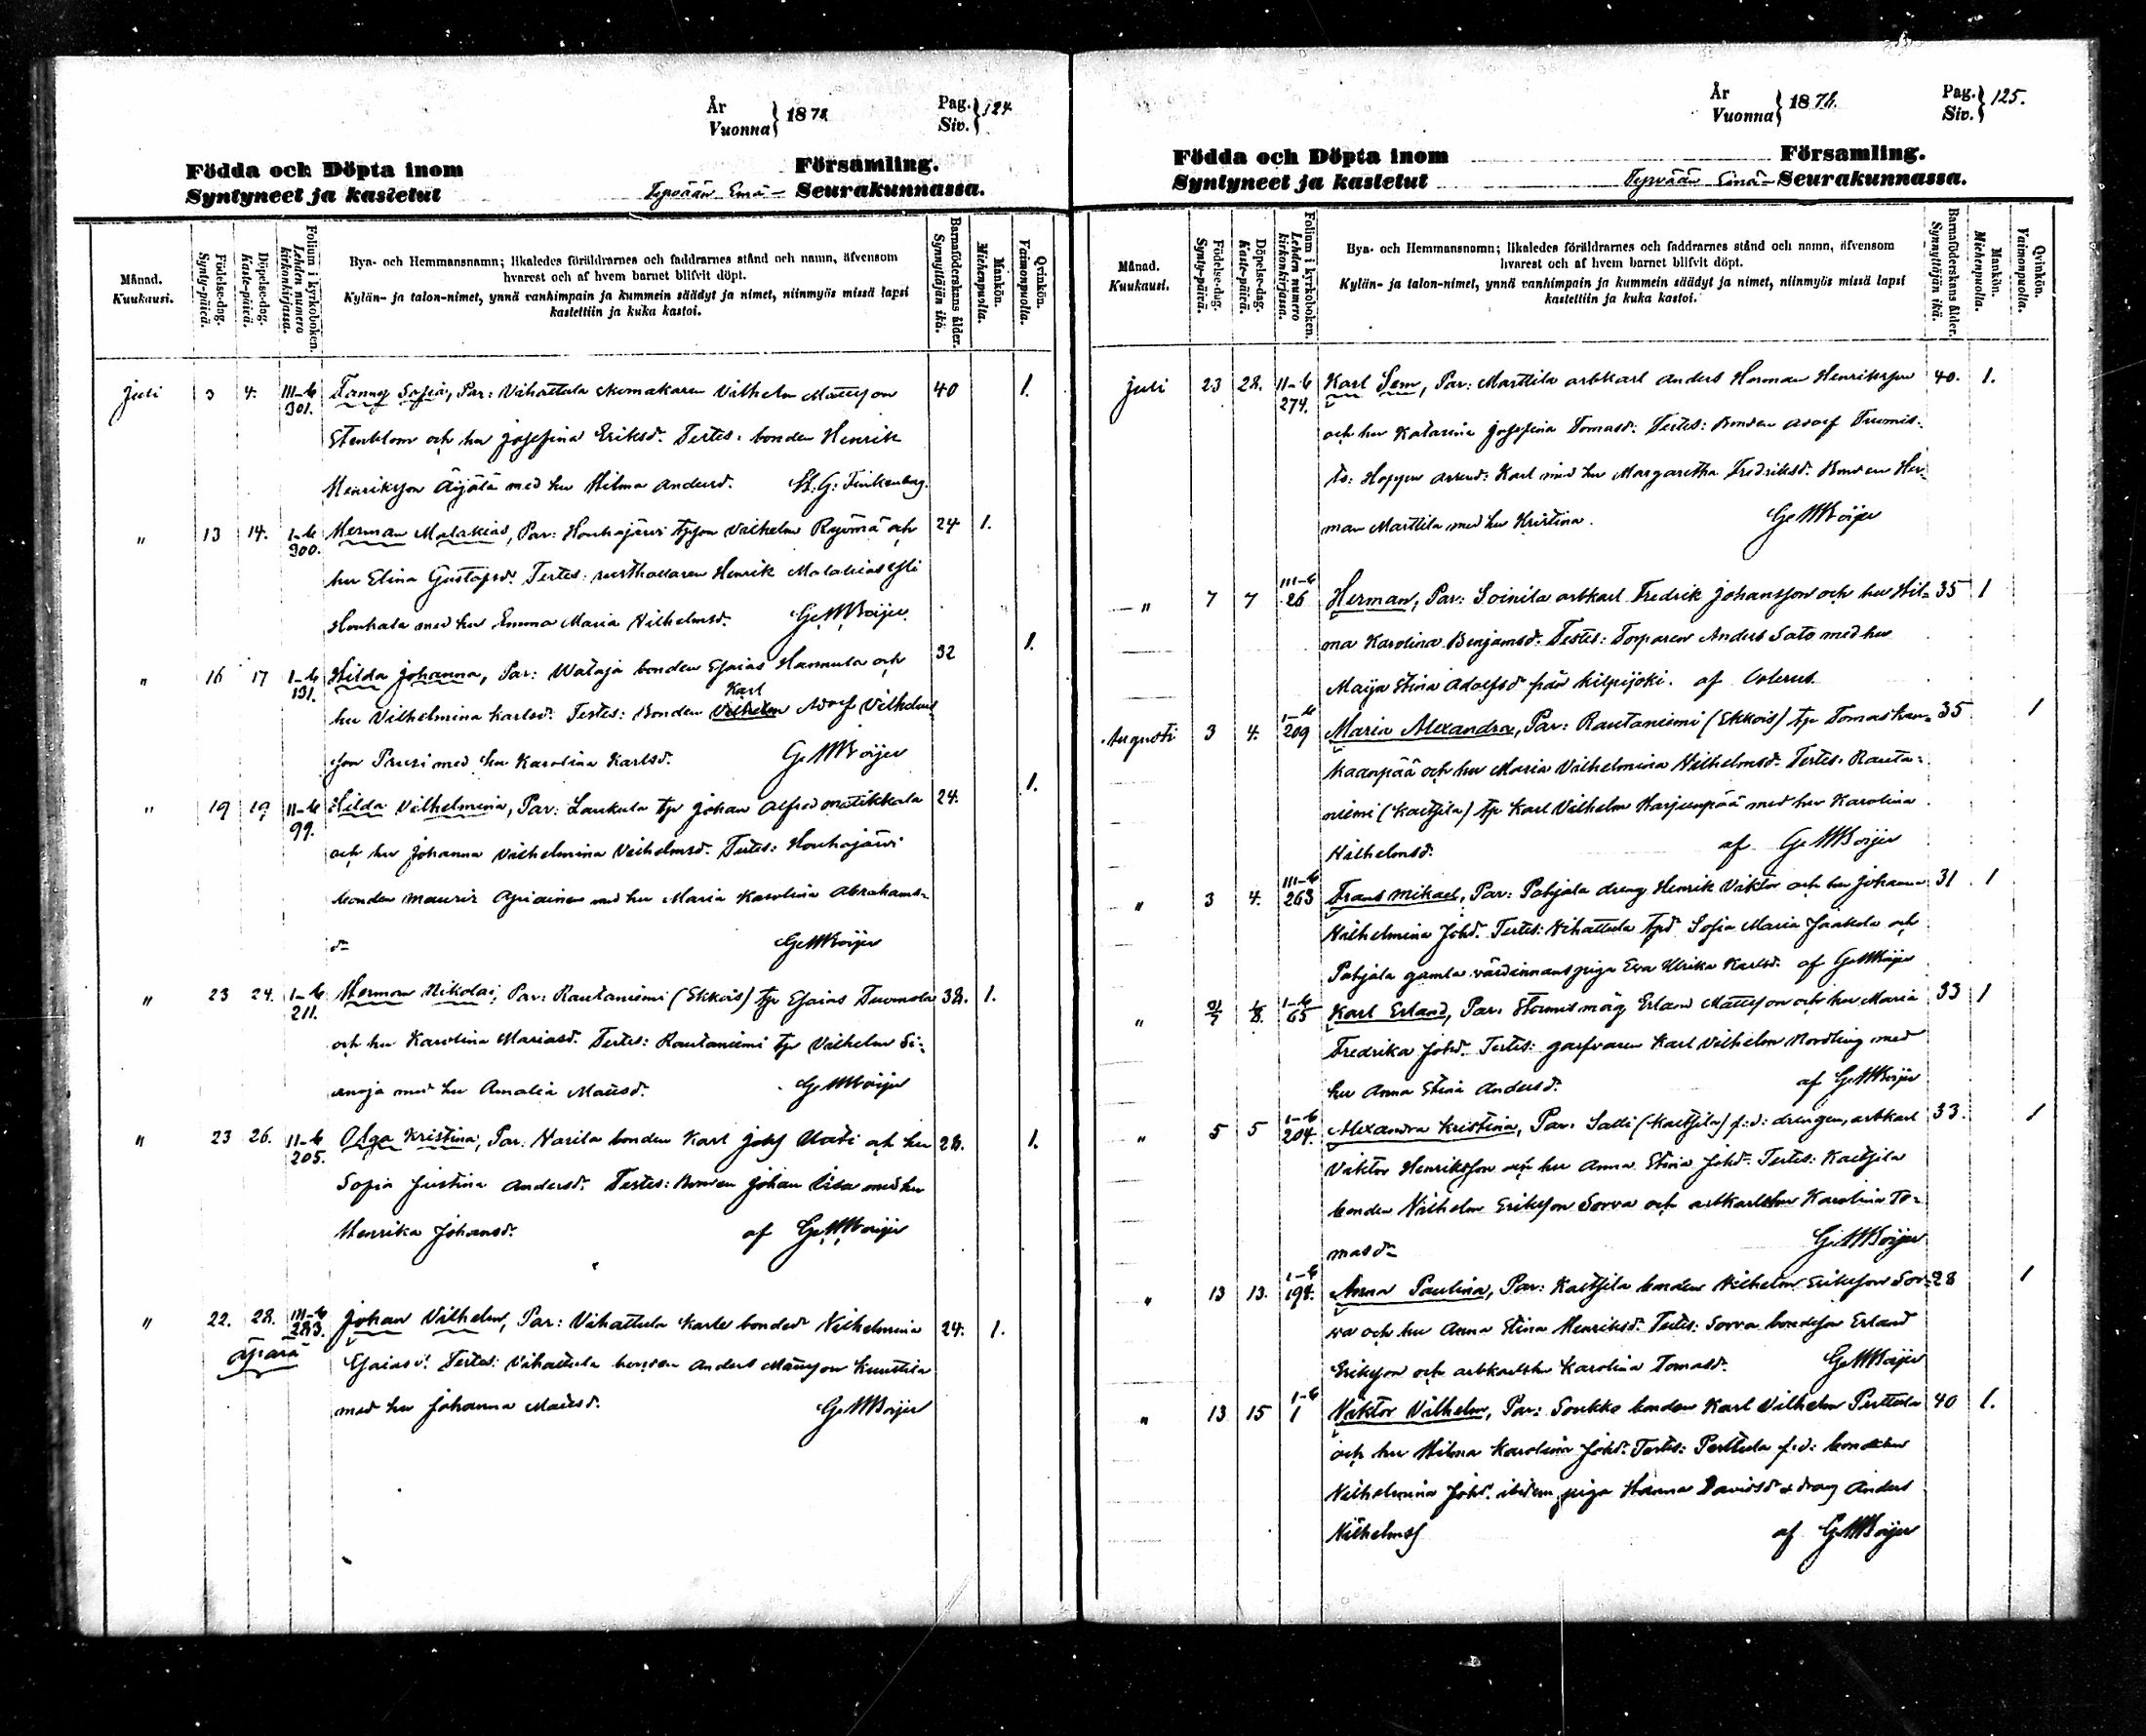 År
Vuonna } 1878 Pag.
Siv. } 124.
Födda och Döpta inom Församling.
Syntyneet ja kastetut Tyrvään Emä- Seurakunnassa.
Månad.
Kuukausi.
Födelse-dag.
Synty-päivä.
Döpelse-dag.
Kaste-päivä.
Folium i kyrkoboken.
Lehden numero kirkonkirjassa.
Bya- och Hemmansnamn; likaledes föräldrarnes och faddrarnes stånd och namn, äfvensom
hvarest och af hvem barnet blifvit döpt.
Kylän- ja talon-nimet, ynnä vanhimpain ja kummein säädyt ja nimet, niinmyös missä lapsi
kastettiin ja kuka kastoi.
Barnaföderskans ålder.
Synnyttäjän ikä.
Mankön.
Miehenpuolia.
Qvinkön.
Vaimonpuolia.
Juli 3 4. III-b 301. Fanny Sofia, Par: Vihattula skomakaren Vilhelm Mattsson 40 1.
Stenblom och hu Josefina Eriksd. Testes: bonden Henrik
Henriksson Äijälä med hu Hilma Andersd. K. G. Finkenberg.
" 13 14. I-b 300. Herman Malakias, Par: Houhajärvi Vilhelm och 24 1.
hu Elina Gustafsd. Testes: rusthållaren Henrik Malakias
Houhala med hu Emma Maria Vilhelmsd. G. W. Boijer.
" 16 17 I-b 131. Hilda Johanna, Par: Wataja bonden Esaias Hannula och 32 1.
Karl
hu Vilhelmina Karlsd. Testes: Bonden Vilhelm Adolf Vilhelms-
son med hu Karolina Karlsd. G W Boijer
" 19 19 II-b 99. Hilda Vilhelmina, Par: Laukula tp Johan Alfred 24. 1.
och hu Johanna Vilhelmina Vilhelmsd. Testes: Houhajärvi
bonden Mauriz med hu Maria Karolina Abrahams-
d. G W Boijer
" 23 24. I-b 211. Herman Nikolai, Par: Rautaniemi (Ekkois) tp Esaias Tuomola 38. 1.
och hu Karolina Mariasd. Testes: Rautaniemi tp Vilhelm Si-
anoja med hu Amalia Matsd. G W Boijer
" 23 26. II-b 205. Olga Kristina, Par: Narila bonden Karl Josef och hu 28. 1.
Sofia Justina Andersd. Testes: Bonden Johan med hu
Henrika Johansd. af G. W. Boijer
" 22. 28. III-b 283. Johan Vilhelm, Par: Vihattula Karle bonded. Vilhelmina 24. 1.
äpärä Esaiasd. Testes: Vihattula bonden Anders Mattsson Knuttila
med hu Johanna Matsd. G W Boijer
År
Vuonna } 1878. Pag.
Siv. } 125.
Födda och Döpta inom Församling.
Syntyneet ja kastetut Tyrvään Emä- Seurakunnassa.
Månad.
Kuukausi.
Födelse-dag.
Synty-päivä.
Döpelse-dag.
Kaste-päivä.
Folium i kyrkoboken.
Lehden numero kirkonkirjassa.
Bya- och Hemmansnamn; likaledes föräldrarnes och faddrarnes stånd och namn, äfvensom
hvarest och af hvem barnet blifvit döpt.
Kylän- ja talon-nimet, ynnä vanhimpain ja kummein säädyt ja nimet, niinmyös missä lapsi
kastettiin ja kuka kastoi.
Barnaföderskans ålder.
Synnyttäjän ikä.
Mankön.
Miehenpuolia.
Qvinkön.
Vaimonpuolia.
Juli 23 28. II-b 274. Karl Sem, Par: Marttila arbkarl Anders Herman Henriksson 40. 1.
och hu Katarina Josefina Tomasd. Testes: Bonden Adolf Tuomis-
to: Karl med hu Margaretha Fredriksd. Bonden Her-
man Marttila med hu Kristina. G W Boijer
" 7 7 III-b 26 Herman, Par: Soinila arbkarl Fredrik Johansson och hu Hil- 35 1
ma Karolina Benjamsd. Testes: Torparen Anders Sato med hu
Maija Stina Adolfsd från Kilpijoki. af
Augusti 3 4. I-b 209 Maria Alexandra, Par: Rautaniemi (Ekkois) tp Tomas 35 1
och hu Maria Vilhelmina Vilhelmsd. Testes: Rauta-
niemi (Kaltsila) tp Karl Vilhelm Harjunpää med hu Karolina
Vilhelmsd. af G W Boijer
" 3 4. III-b 263 Frans Mikael, Par: Pohjala dreng Henrik Viktor och hu Johanna 31 1
Vilhelmina Johd. Testes: Vihattula tpd Sofia Maria Jaakola och
Pohjala gamla värdinnans piga Eva Ulrika Karlsd. af G W Boijer
" 31/7 1/8. I-b 65 Karl Erland, Par: Stormi måg Erland Mattsson och hu Maria 33 1
Fredrika Johd. Testes: garfvaren Karl Vilhelm Nordling med
hu Anna Stina Andersd. af G W Boijer
" 5 5 I-b 204. Alexandra Kristina, Par: Salli (Kaltsila) f.d. drengen, arbkarl 33. 1
Viktor Henriksson och hu Anna Stina Johd. Testes: Kaltsila
bonden Vilhelm Eriksson Sorva och arbkarlshu Karolina To-
masd. G. W Boijer
" 13 13. I-b 198. Anna Paulina, Par: Kaltsila bonden Vilhelm Eriksson Sor- 28 1
va och hu Anna Stina Henriksd. Testes: Sorva bondeson Erland
Eriksson och arbkarlshu Karolina Tomasd. G W Boijer
" 13 15 I-b 1 Viktor Vilhelm, Par: Soukko bonden Karl Vilhelm Perttula 40 1.
och hu Hilma Karolina Johd. Testes: Perttula f.d. bondehu
Vilhelmina Johd. ibidem, piga Hanna Davidsd & dräng Anders
Vilhelmss af G W Boijer